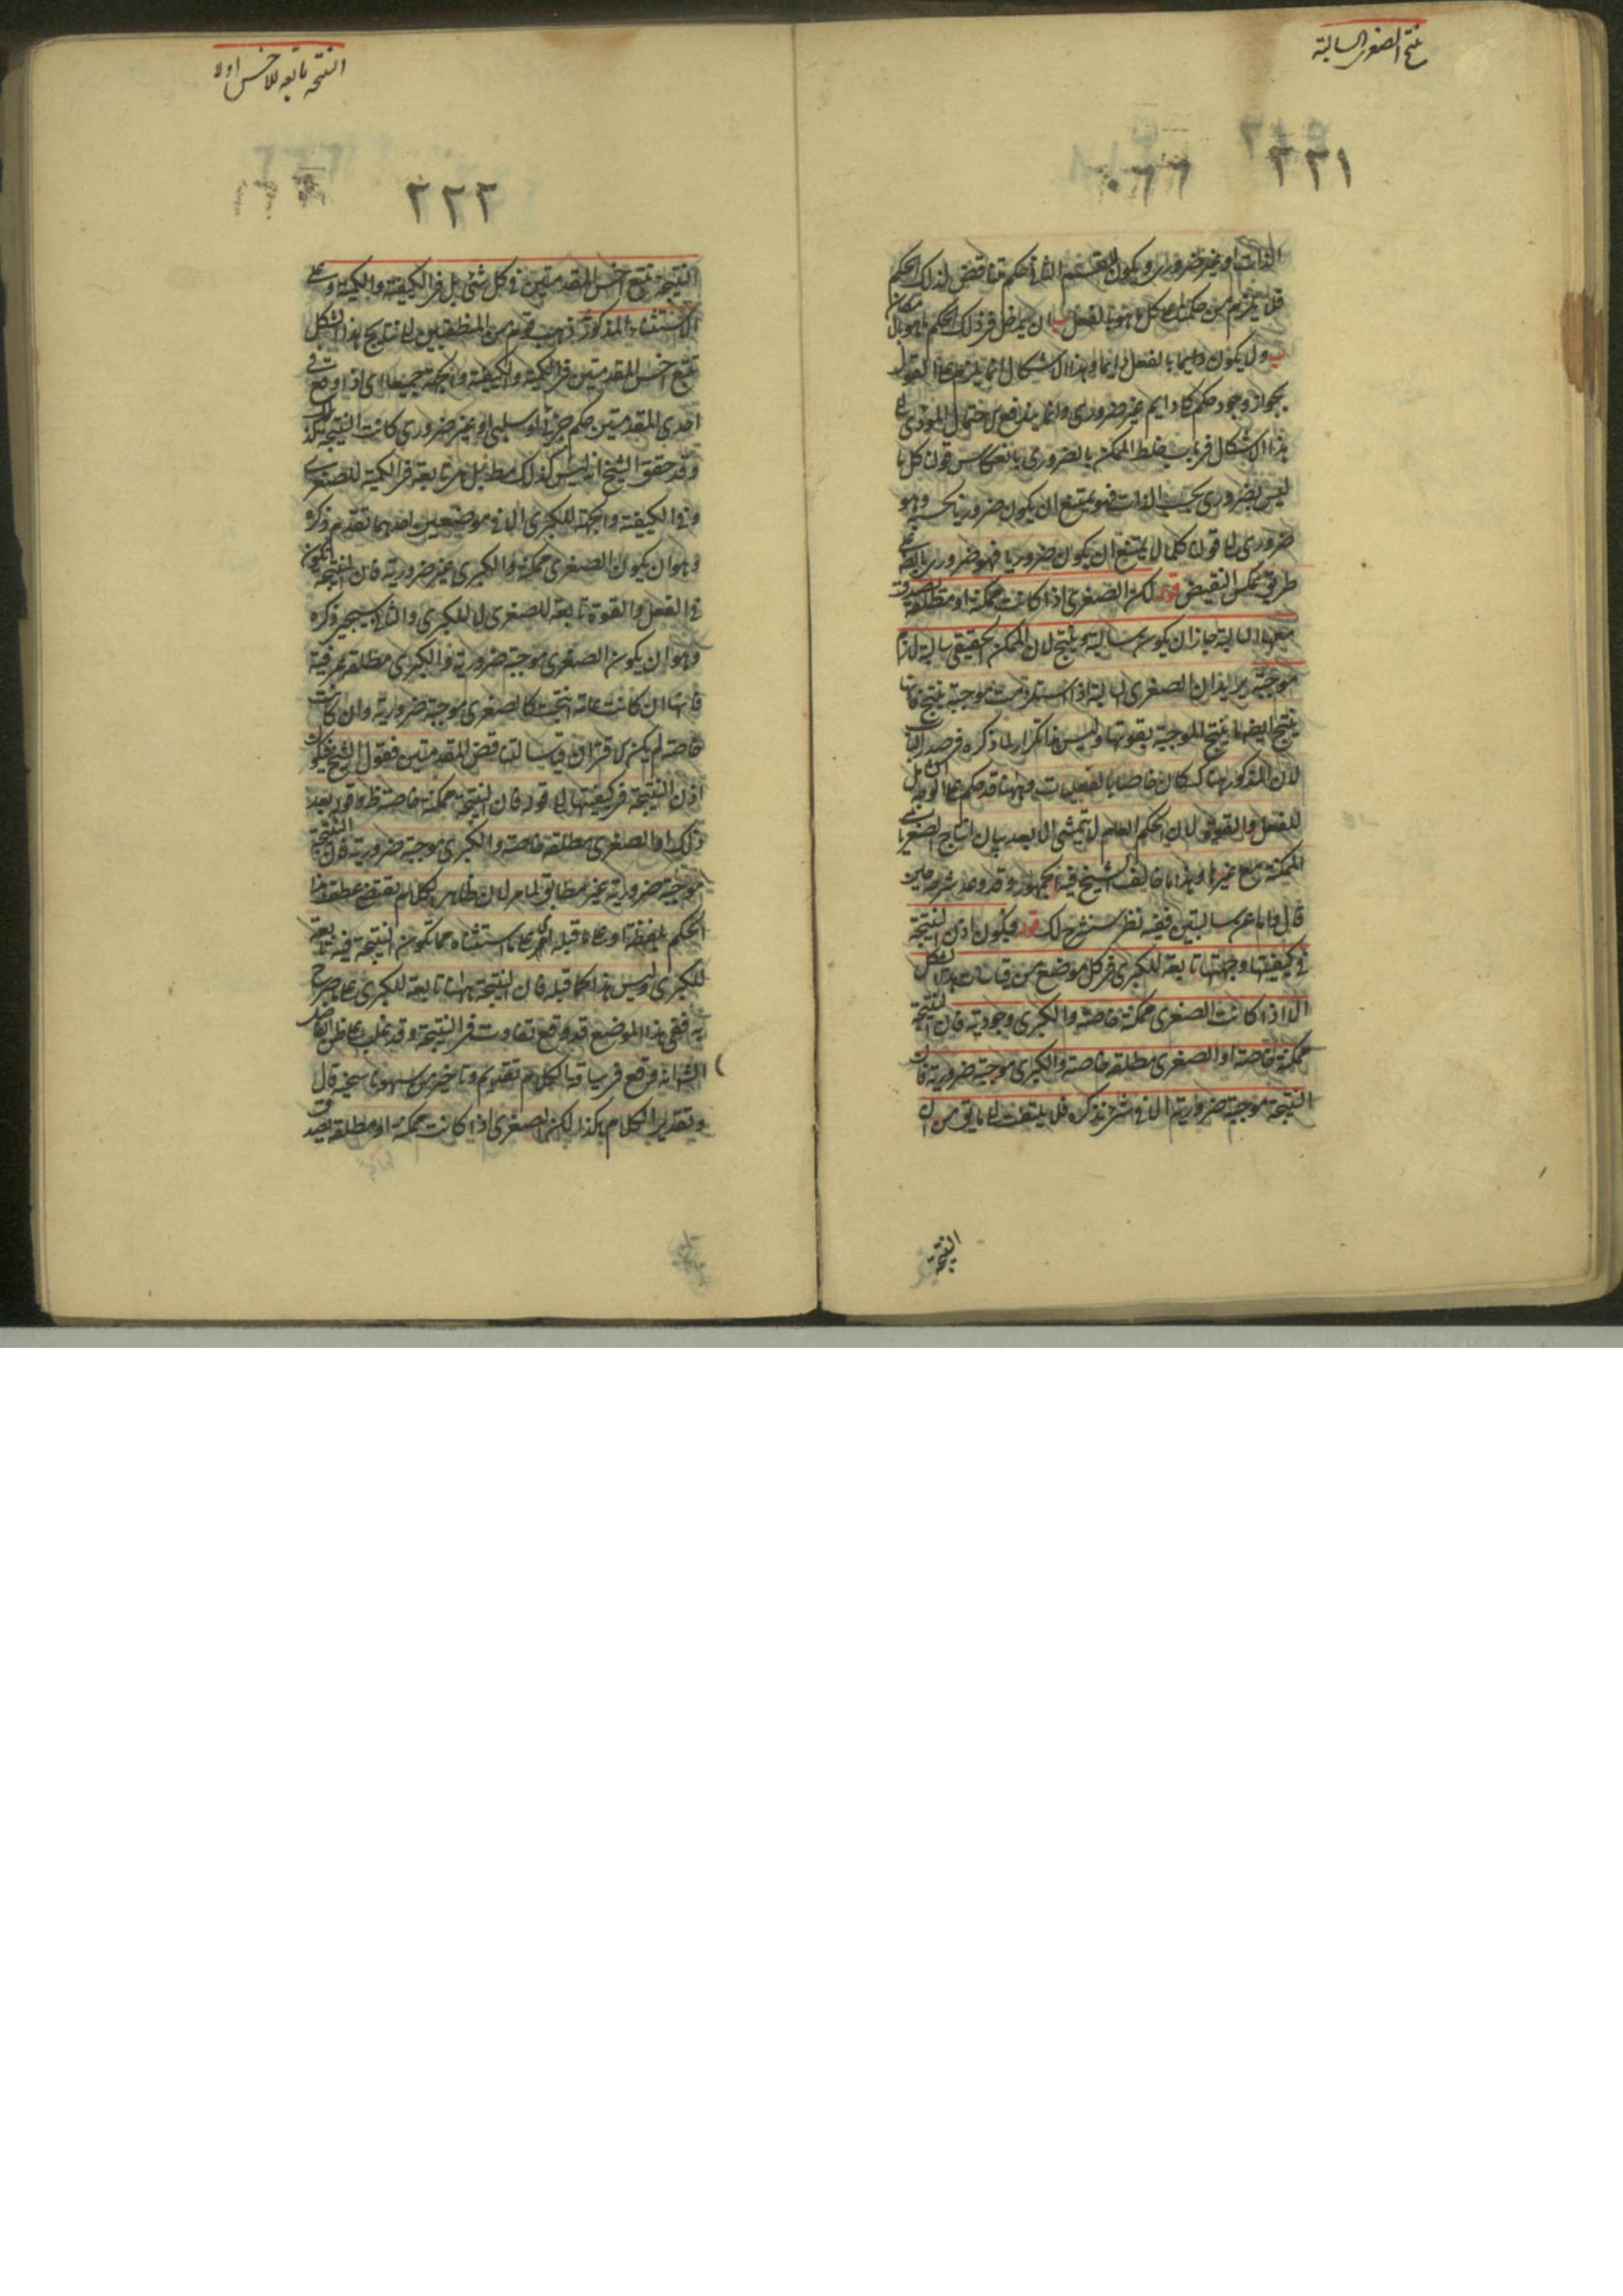 ينتج الصغرى السالبة
٢٢١
الذات او غير ضرورى ويكون القسم الثانى حكم مناقض لذلك الحكم
فلم يلزم من حكمنا على كل ما هو ب بالفعل ان يدخل فى ذلك الحكم ما هو ب بالامكان
ولا يكون دايما بالفعل دايما وهذا الاشكال انما يلزم على القول
بجواز وجود حكم كلى دايم غير ضرورى وانما يندفع الاحتمال المؤدى الى
هذا الاشكال فى باب خلط الممكن بالضرورى بانعكاس قولنا كل ما
ليس بضرورى بحسب الذات فهو يمتنع ان يكون ضروريا بحسبه وهو
ضرورى الى قولنا كل ما لا يمتنع ان يكون ضروريا فهو ضرورى بالضرورة على
طريق عكس النقيض قوله لكن الصغرى اذا كانت ممكنة او مطلقة تصدق
معها السالبة جاز ان يكون سالبة وينتج لان الممكن الحقيقى سالبه لازم
موجبه يريد ان الصغرى السالبة اذا استلزمت موجبة ينتج فانها
ينتج ايضا ما ينتج الموجبة بقوتها وليس هذا تكرار لما ذكره فى صدر الباب
لان المذكور هناك كان خاصا بالفعليات وههنا قد حكم على الوجه الشامل
للفعل والقوة لان الحكم العام لا يتمشى الا بعد بيان انتاج الصغرى
الممكنة مع غيرها وهذا ما خالف الشيخ فيه الجمهور وقد وعد شرحه حين
قال واما عن سالبتين ففيه نظر سنشرح لك قوله فيكون اذن النتيجة
فى كيفيتها وجهتها تابعة للكبرى فى كل موضع من قياسات هذا الشكل
الا اذا كانت الصغرى ممكنة خاصة والكبرى وجودية فان النتيجة
ممكنة خاصة او الصغرى مطلقة خاصة والكبرى موجبة ضرورية فان
النتيجة موجبة ضرورية الا فى شئ نذكره فلا يلتفت الى ما يق من ان
النتيجة
النتيجة تابعة للاخس اولا
٢٢٢
النتيجة تتبع اخس المقدمتين فى كل شئ بل فى الكيفية والكمية وعلى
الاستثناء المذكور ذهب قوم من المنطقيين الى ان نتايج هذا الشكل
تتبع اخس المقدمتين فى الكمية والكيفية والجهة جميعا اى اذا وقع فى
احدى المقدمتين حكم جزئى او سلبى او غير ضرورى كانت النتيجة كذلك
وقد حقق الشيخ انه ليس كذلك مطلقا بل هى تابعة فى الكمية للصغرى
وفى الكيفية والجهة للكبرى الا فى موضعين احدهما تقدم ذكره
وهو ان يكون الصغرى ممكنة والكبرى غير ضرورية فان النتيجة تكون
فى الفعل والقوة تابعة للصغرى لا للكبرى والثانى سيجئ ذكره
وهو ان يكون الصغرى موجبة ضرورية والكبرى مطلقة عرفية
فانها ان كانت عامة انتجت كالصغرى موجبة ضرورية وان كانت
خاصة لم يكن الاقتران قياسا لتناقض المقدمتين فقول الشيخ فيكون
اذن النتيجة فى كيفيتها الى قوله فان النتيجة ممكنة خاصة ظ وقوله بعد
ذلك او الصغرى مطلقة خاصة والكبرى موجبة ضرورية فان النتيجة
موجبة ضرورية غير مطابق لما مر لان ظاهر الكلام يقتضى عطف هذا
الحكم بلفظة او على ما قبله اى على ما استثناه مما تكون النتيجة فيه تابعة
للكبرى وليس هذا كما قبله فان النتيجة ههنا تابعة للكبرى على ما صرح
به ففى هذا الموضع قد وقع تفاوت فى النتيجة وقد غلب على ظن الفاضل
الشارح انه وقع فى سياقة الكلام تقديم وتاخير من سهو الناسخ قال
وتقدير الكلام هكذا لكن الصغرى اذا كانت ممكنة او مطلقة يصدق